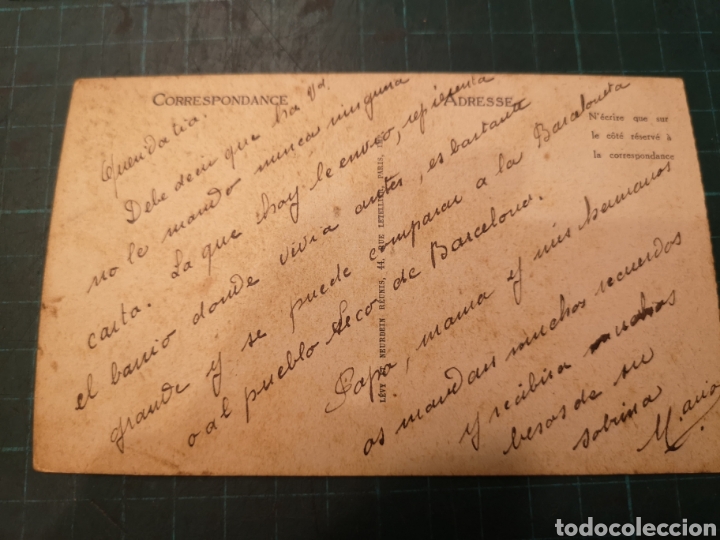 CORRESPONDANCE
ADRESSE
N'écrire que sur
le côté réservé à
la correspondance
LÉVY & NEURDEIN RÉUNIS, 44, RUE LETELLIER, PARIS
Querida tia.
Debe decir que ha Vd
no le mando nunca ninguna
carta. La que hoy le envio, representa
el barrio donde vivia antes, es bastante
grande y se puede comparar a la Barceloneta
o al pueblo Seco de Barcelona.
Papa, mama y mis hermanos
os mandan muchos recuerdos
y recibira muchos
besos de su
sobrina
Maria
todocoleccion